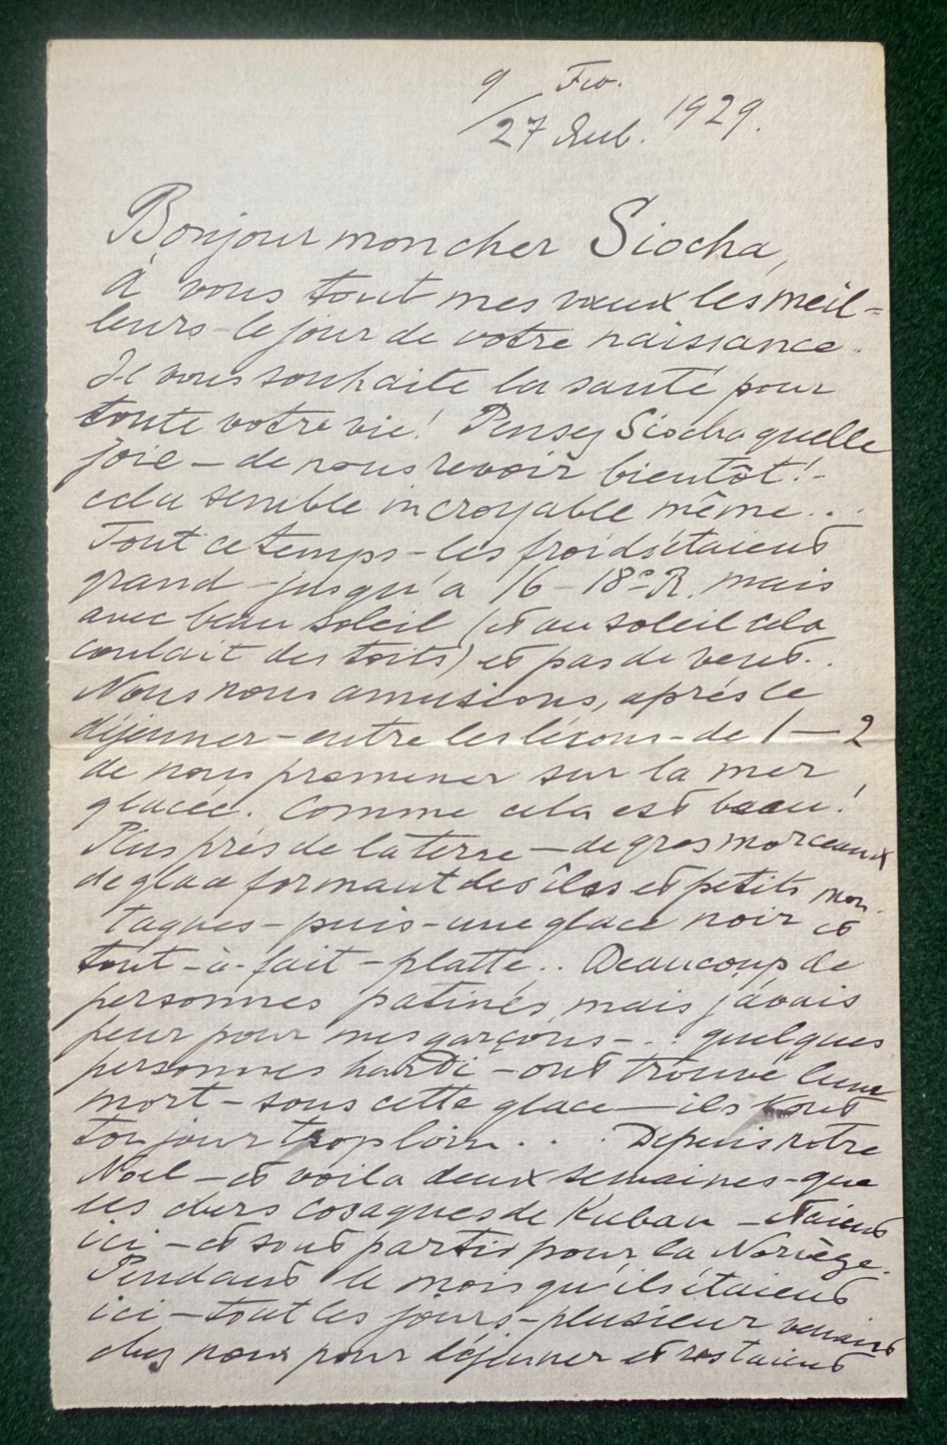 9 Fev.
/27 Янв. 1929.
Bonjour mon cher Siocha,
à vous tout mes vœux les meil-
leurs le jour de votre naissance.
Je vous souhaite la santé pour
toute votre vie! Pensez Siocha quelle
joie – de nous revoir bientôt! -
cela semble incroyable même...
Tout ce temps – les froids étaient
grand – jusqu'a 16 – 18° R. mais
avec beau soleil (et au soleil cela
coulait des toits) et pas de vent..
Nous nous amusions, après le
déjeuner – entre les léçons – de 1 — 2
de nous promener sur la mer
glacée. Comme cela est beau!
Plus près de la terre – de gros morceaux
de glace formant des îles et petits mon-
tagnes – puis – une glace noir et
tout-à-fait – platte.. Beaucoup de
personnes patinés, mais j'avais
peur pour mes garçons –.. quelques
personnes hardi – ont trouvé leur
mort – sous cette glace — ils vont
toujour trop loin... Depuis notre
Noël – et voila deux semaines – que
les chers cosaques de Kuban – étaient
ici – et sont partis pour la Norvège.
Pendant le mois qu'ils étaient
ici – tout les jours – plusieur venaient
chez nous pour déjeuner et restaient